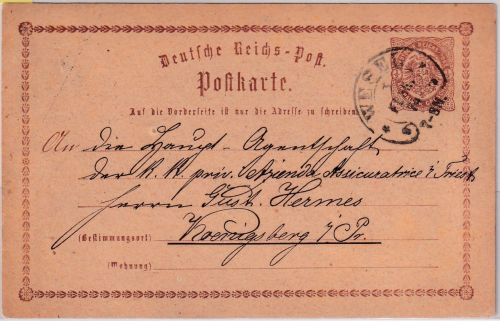 Deutsche Reichs-Post.
Postkarte.
WESEL
7-8N
Auf die Vorderseite ist nur die Adresse zu schreiben
An die Haupt-Agentschaft
der K. K. priv. Azienda Assicuratrice i/ Triest
Herrn Gust. Hermes
(Bestimmungsort) Koenigsberg i/ Pr.
(Wohnung)